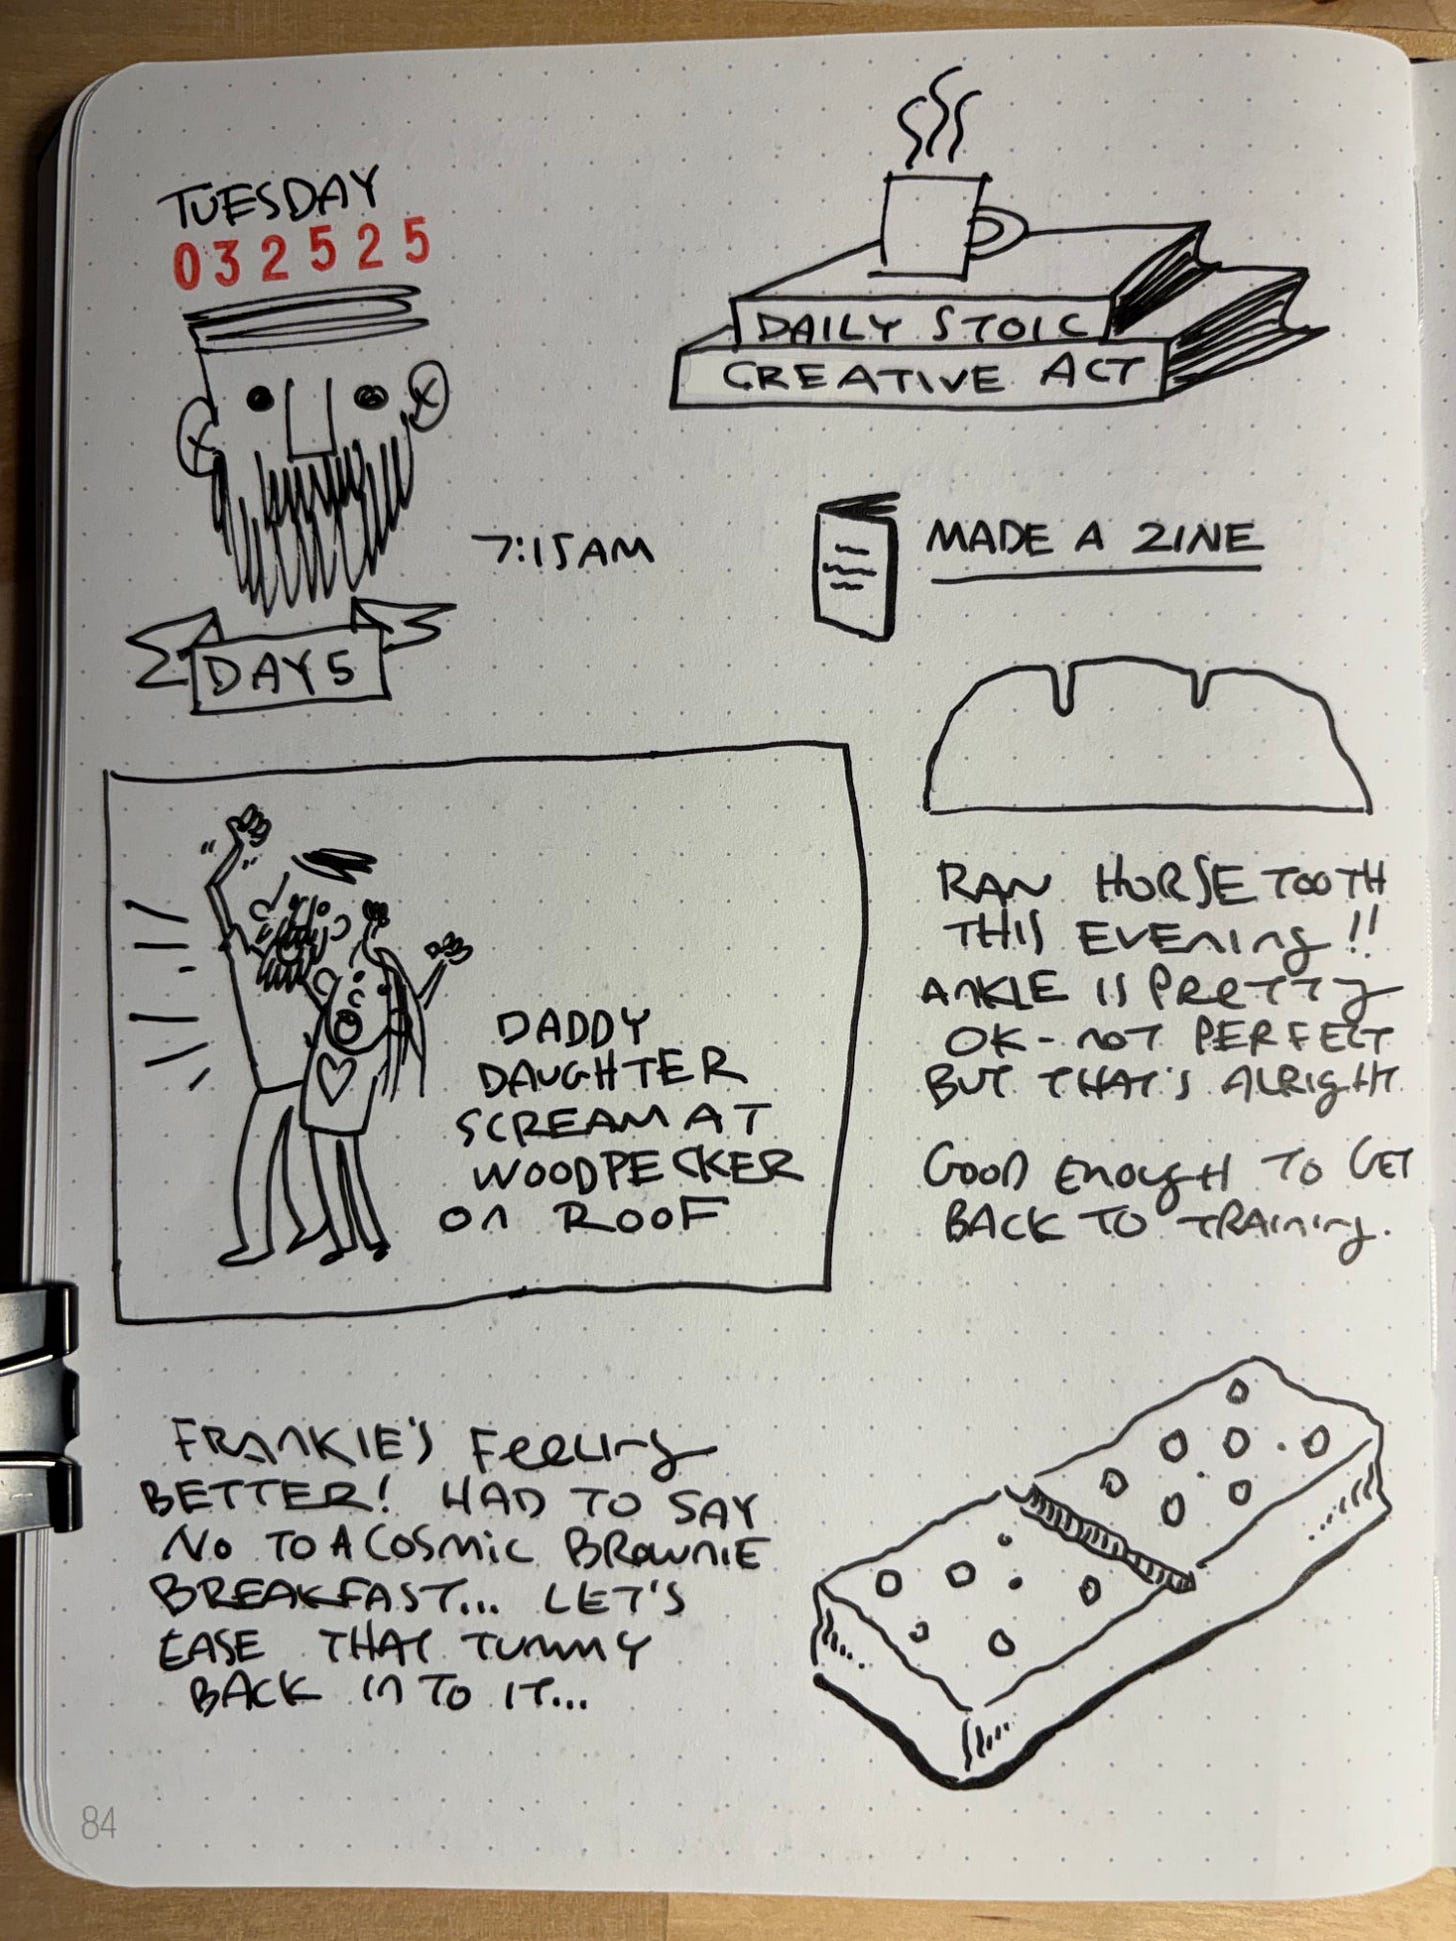 TUESDAY
032525
DAILY STOIC
CREATIVE ACT
7:15AM
MADE A ZINE
DAY 5
RAN HORSETOOTH
THIS EVENING!!
ANKLE IS PRETTY
OK - NOT PERFECT
BUT THAT'S ALRIGHT
GOOD ENOUGH TO GET
BACK TO TRAINING.
DADDY
DAUGHTER
SCREAM AT
WOODPECKER
ON ROOF
FRANKIE'S FEELING
BETTER! HAD TO SAY
NO TO A COSMIC BROWNIE
BREAKFAST... LET'S
EASE THAT TUMMY
BACK IN TO IT...
84